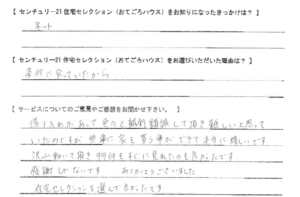 【 センチュリー21 住宅セレクション（おてごろハウス）をお知りになったきっかけは？ 】
ネット
【 センチュリー21 住宅セレクション（おてごろハウス）をお選びいただいた理由は？ 】
親切に
いたから
【 サービスについてのご意見やご感想をお聞かせ下さい。 】
借り入れがあって色々と
して頂き難しいと思って
いたのですが 無事に家を買う事ができて本当に嬉しいです
沢山動いて頂き物件もすぐに見れたのも良かったです
感謝しかないです ありがとうございました
住宅セレクションを選んで良かったです